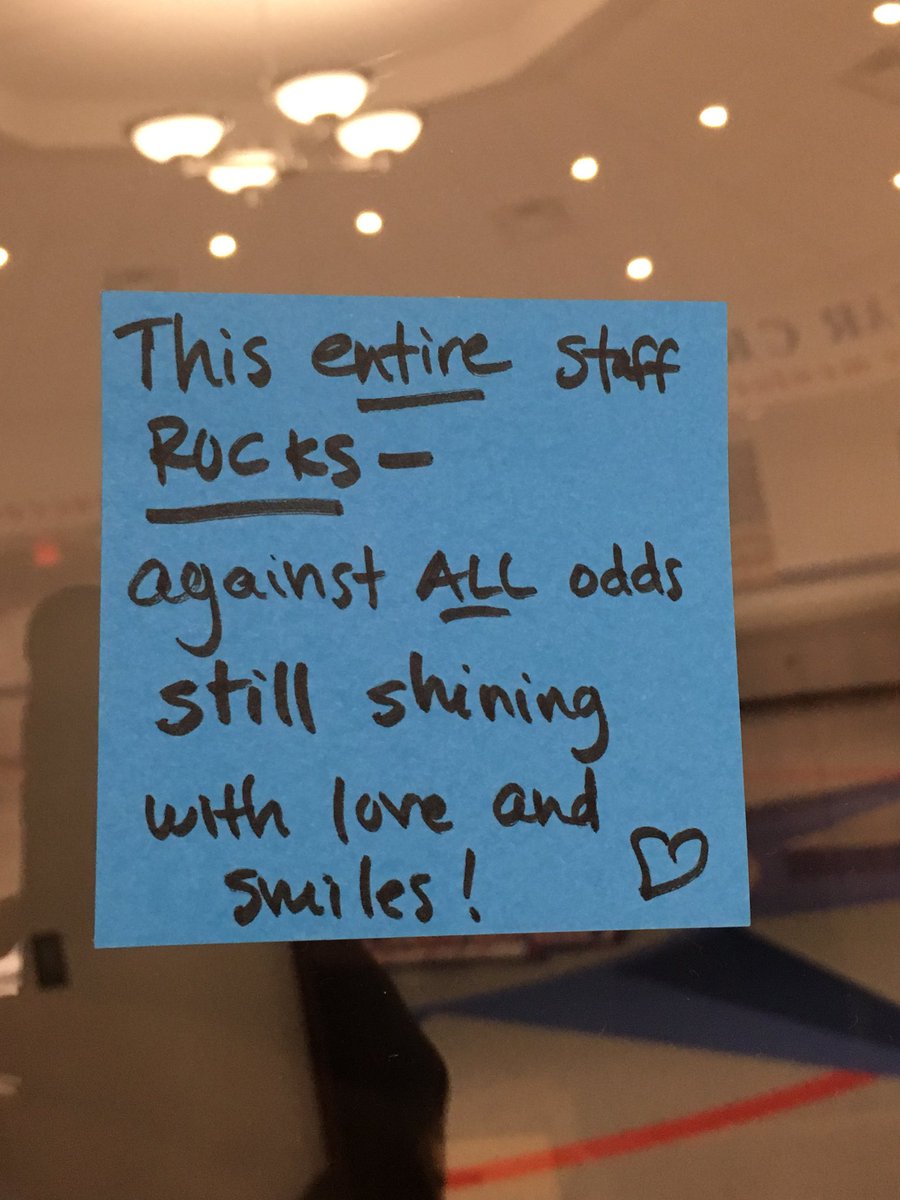 This entire staff
ROCKS—
against ALL odds
still shining
with love and
smiles!